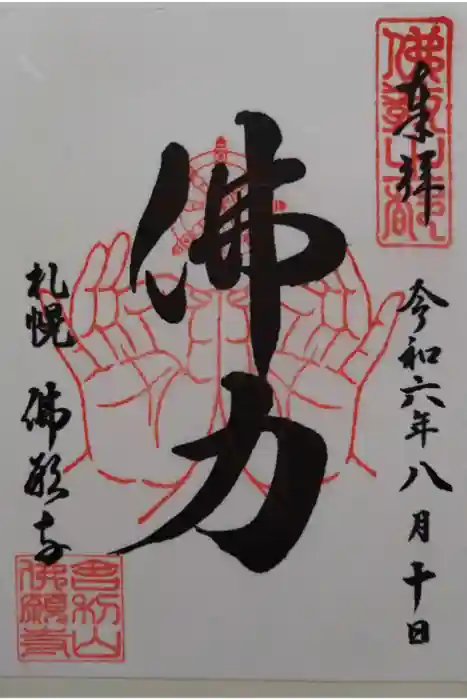 奉拝
令和六年八月十日
佛力
札幌 佛願寺
佛願寺